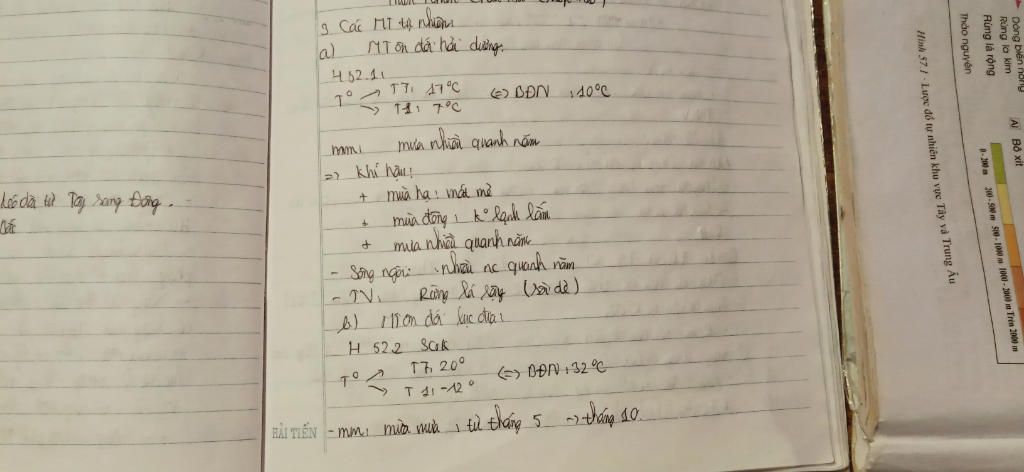 kéo dài từ Tây sang Đông.
3 Các MT tự nhiên
a) MT ôn đới hải dương.
H 52.1:
T° → T7: 17°C
→ T1: 7°C
<=> BĐN : 10°C
mm: mưa nhiều quanh năm
=> Khí hậu:
+ mùa hạ: mát mẻ
+ mùa đông: k° lạnh lắm
+ mưa nhiều quanh năm
- Sông ngòi: nhiều nc quanh năm
- TV: Rừng lá rộng (sồi dẻ)
b) MT ôn đới lục địa:
H 52.2 SGK
T° → T7: 20°
→ T1: -12°
<=> BĐN : 32°C
- mm: mùa mưa : từ tháng 5 -> tháng 10.
HẢI TIẾN
Dòng biển nóng
Rừng lá kim
Rừng lá rộng
Thảo nguyên
Al Bô xit
0 - 200 m 200 - 500 m 500 - 1000 m 1000 - 2000 m Trên 2000 m
Hình 57.1 - Lược đồ tự nhiên khu vực Tây và Trung Âu